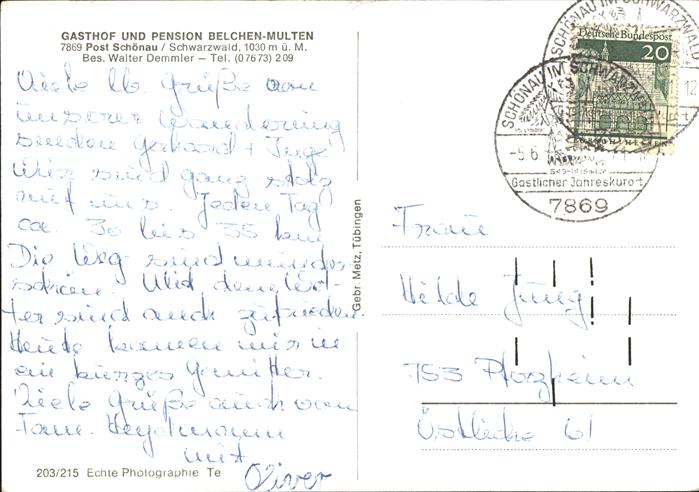 GASTHOF UND PENSION BELCHEN-MULTEN
7869 Post Schönau / Schwarzwald, 1030 m ü. M.
Bes. Walter Demmler — Tel. (07673) 209
Viele lb. Grüße von
unserer Wanderung
senden Gerhard + Inge
Wir sind ganz stolz
auf uns. Jeden Tag
ca. 30 bis 35 km
Die Weg sind wunder
schön. Und dem Wet-
ter sind auch zufrieden.
Heute kamen wir in
ein kurzes Gewitter.
Viele Grüße auch von
Fam. Heydmann
mit
Oliver
203/215 Echte Photographie Te
Gebr. Metz, Tübingen
Deutsche Bundespost
20
SCHÖNAU IM SCHWARZWALD
12
SCHÖNAU IM SCHWARZWALD
-5.6.
Gastlicher Jahreskurort
7869
Frau
Hilde Jung
753 Pforzheim
Östliche 61